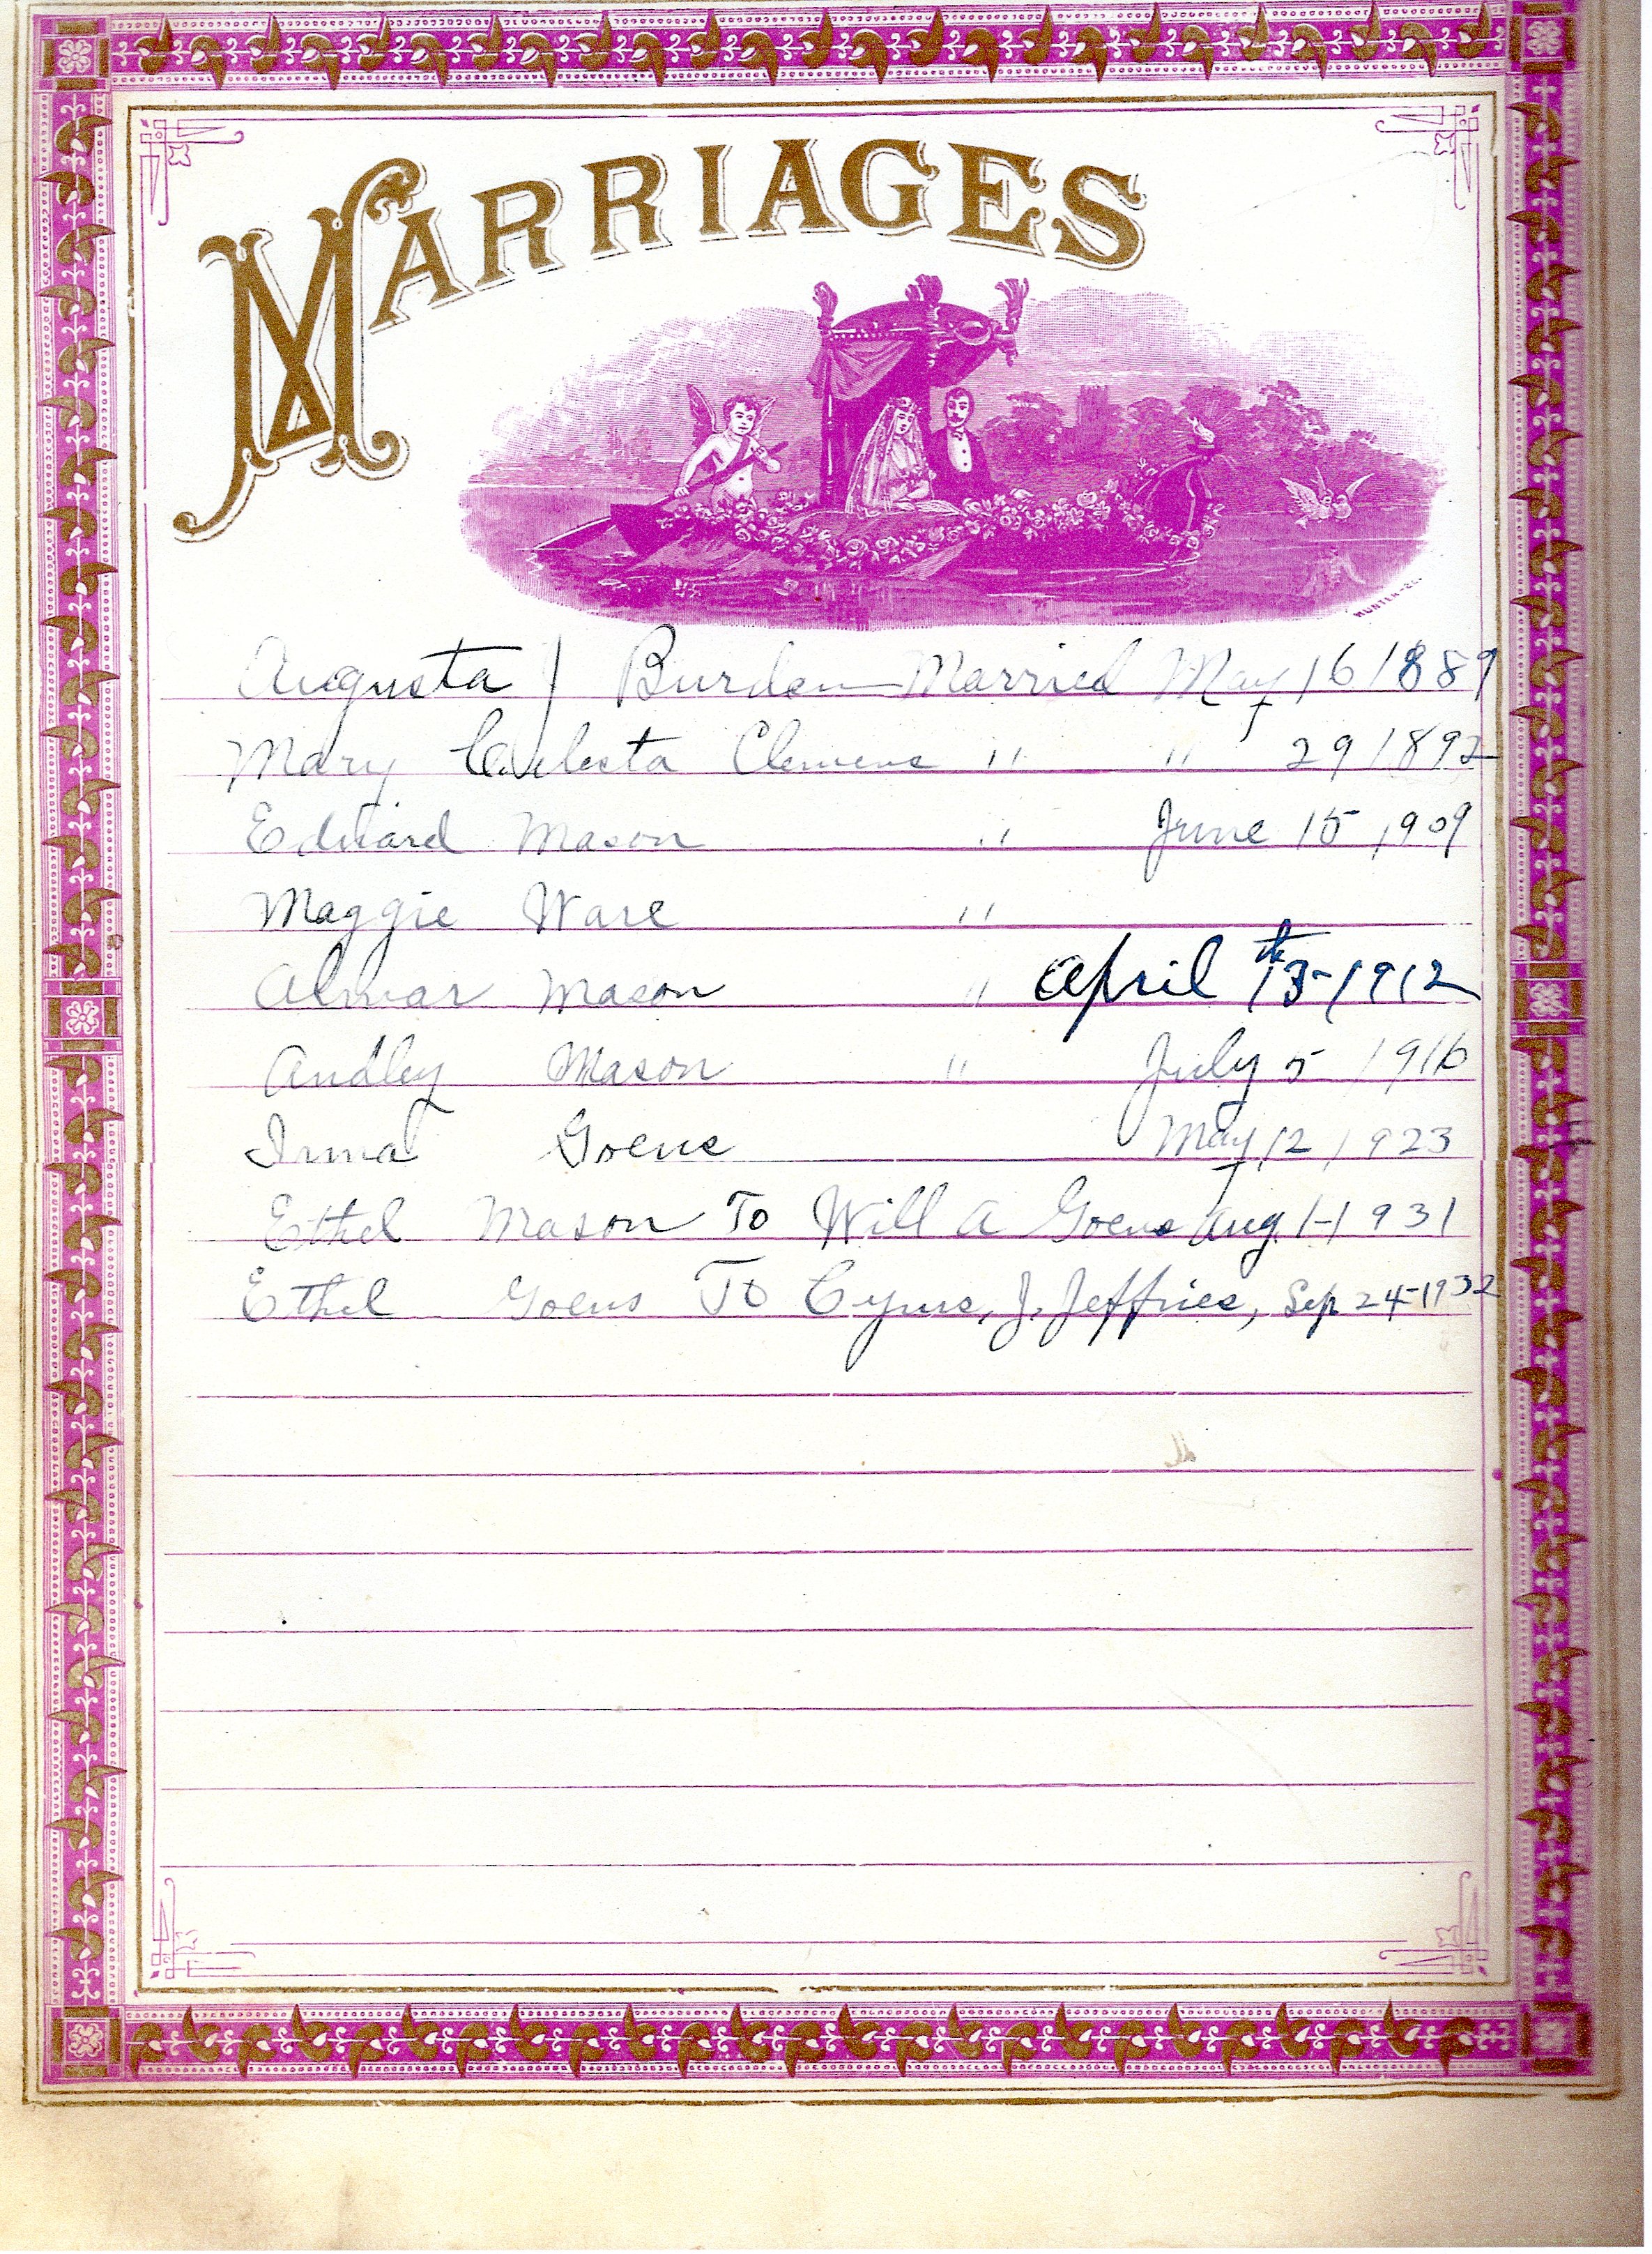 MARRIAGES
HUNTER-SC.
Augusta J Burden Married May 16 1889
Mary Celesta Clemens " " 29 1892
Edward Mason " June 15 1909
Maggie Ware "
Almar Mason " April 13th-1912
Andley Mason " July 5 1916
Irma Goens May 12 1923
Ethel Mason To Will A Goens Aug 1-1931
Ethel Goens To Cyrus, J. Jeffries, Sep 24-1932